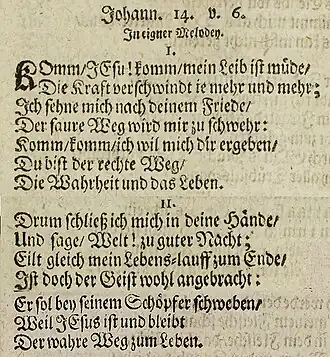 Johann. 14. v. 6.
In eigner Melodey.
I.
KOmm/JEsu! komm/mein Leib ist müde/
Die Kraft verschwindt ie mehr und mehr;
Ich sehne mich nach deinem Friede/
Der saure Weg wird mir zu schwehr:
Komm/komm/ich wil mich dir ergeben/
Du bist der rechte Weg/
Die Wahrheit und das Leben.
II.
Drum schließ ich mich in deine Hände/
Und sage/ Welt! zu guter Nacht;
Eilt gleich mein Lebens-lauff zum Ende/
Ist doch der Geist wohl angebracht:
Er sol bey seinem Schöpfer schweben/
Weil JEsus ist und bleibt
Der wahre Weg zum Leben.